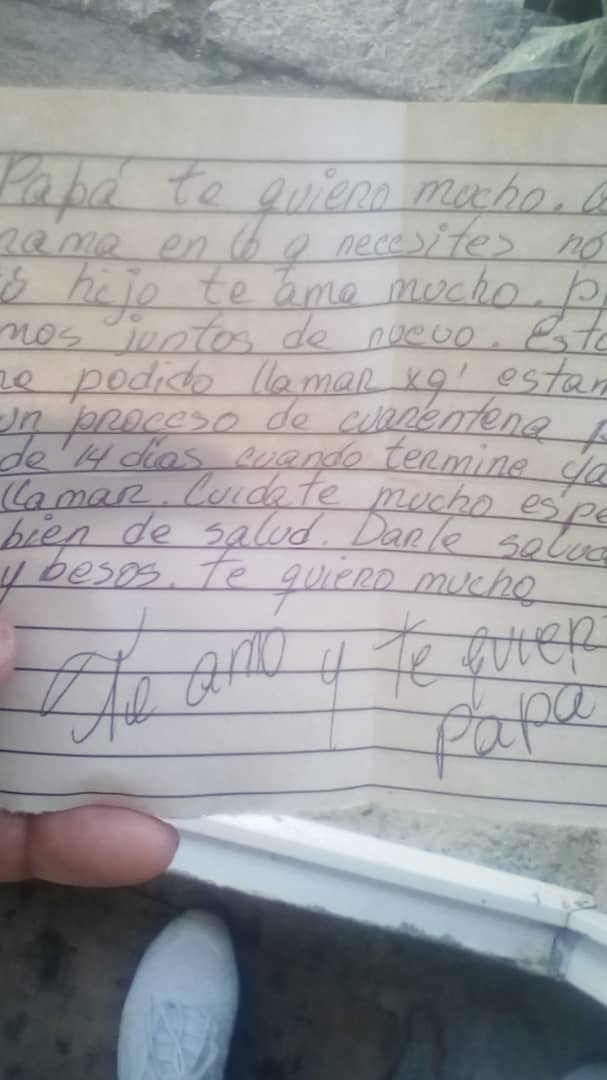 Papá te quieno mocho.
nama en lo q necesites no
hijo te ama mocho.
mos juntos de noevo. Esto
he podido llamar xq' estam
un proceso de cuanentena
de 14 días cuando termine ya
llamar. Cuidate mucho espe
bien de salud. Danle salud
y besos. te quieno mucho
Te amo y te quier
papá